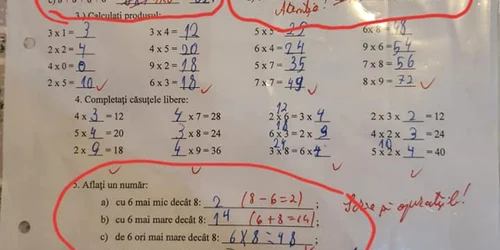 3.) Calculați produsul:
3 x 1 = 3 3 x 4 = 12 5 x 5 25 6 x 8 48
2 x 2 = 4 4 x 5 = 20 6 x 4 = 24 9 x 6 = 54
4 x 0 = 0 9 x 2 = 18 5 x 7 = 35 7 x 8 = 56
2 x 5 = 10 6 x 3 = 18 7 x 7 = 49 8 x 9 = 72
4. Completați căsuțele libere:
12
4 x 3 = 12 4 x 7 = 28 2 x 6 = 3 x 4 2 x 3 x 2 = 12
18
5 x 4 = 20 3 x 8 = 24 6 x 3 = 2 x 9 4 x 2 x 3 = 24
24 10
2 x 9 = 18 4 x 9 = 36 3 x 8 = 6 x 4 5 x 2 x 4 = 40
5. Aflați un număr:
a) cu 6 mai mic decât 8: 2 (8 - 6 = 2) ;
b) cu 6 mai mare decât 8: 14 (6 + 8 = 14) ;
c) de 6 ori mai mare decât 8: 6 x 8 = 48
Scrie și operațiile!